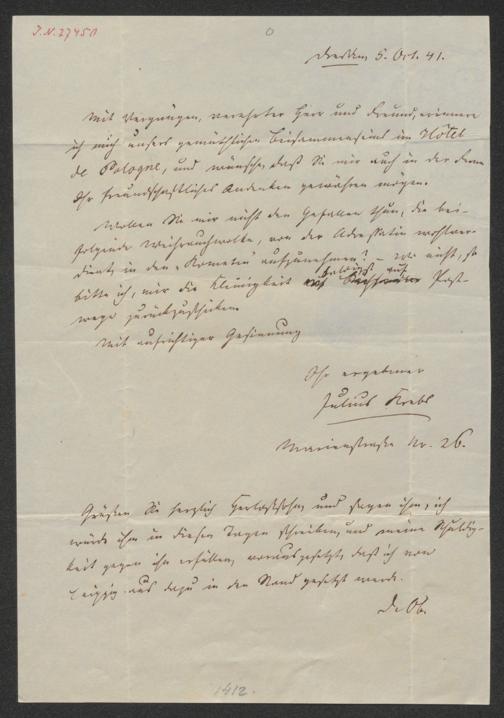 J.N. 27451
Dresden 5. Oct. 41.
Mit Vergnügen, verehrter Herr und Freund, erinnere
ich mich unsers gemüthlichen Beisammenseins im Hôtel
de Pologne, und wünsche, daß Sie mir auch in der Ferne
Ihr freundschaftliches Andenken gewähren mögen.
Wollen Sie mir nicht den Gefallen thun, die bei-
folgende Weihrauchwolke, von der Adressatin wohlver-
dient, in den „Kometen“ aufzunehmen? – Wo nicht, so
bitte ich, mir die Kleinigkeit auf Post-
wege zurückzuschicken.
Mit aufrichtiger Gesinnung
Ihr ergebener
Julius Krebs
Marienstraße No. 26.
Grüßen Sie herzlich Herloßsohn, und sagen ihm, ich
würde ihm in diesen Tagen schreiben, und meine Schuldig-
keit gegen ihn erfüllen, vorausgesetzt, daß ich von
Leipzig aus dazu in den Stand gesetzt werde.
D. Ob.
1412.